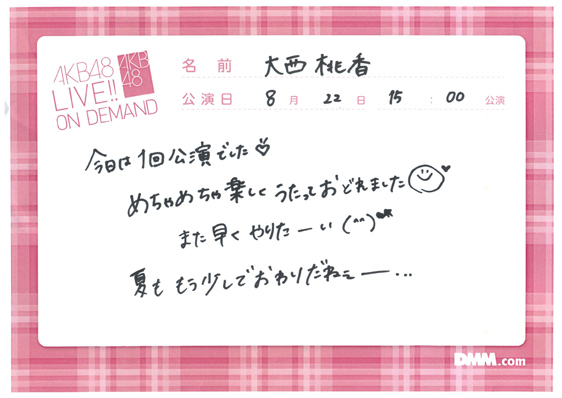 AKB48
LIVE!!
ON DEMAND
AKB
48
名前 大西桃香
公演日 8月22日 15:00公演
今日は1回公演でした♡
めちゃめちゃ楽しくうたっておどれました♥
また早くやりたーい(^^)
夏ももう少しでおわりだねぇー...
DMM.com